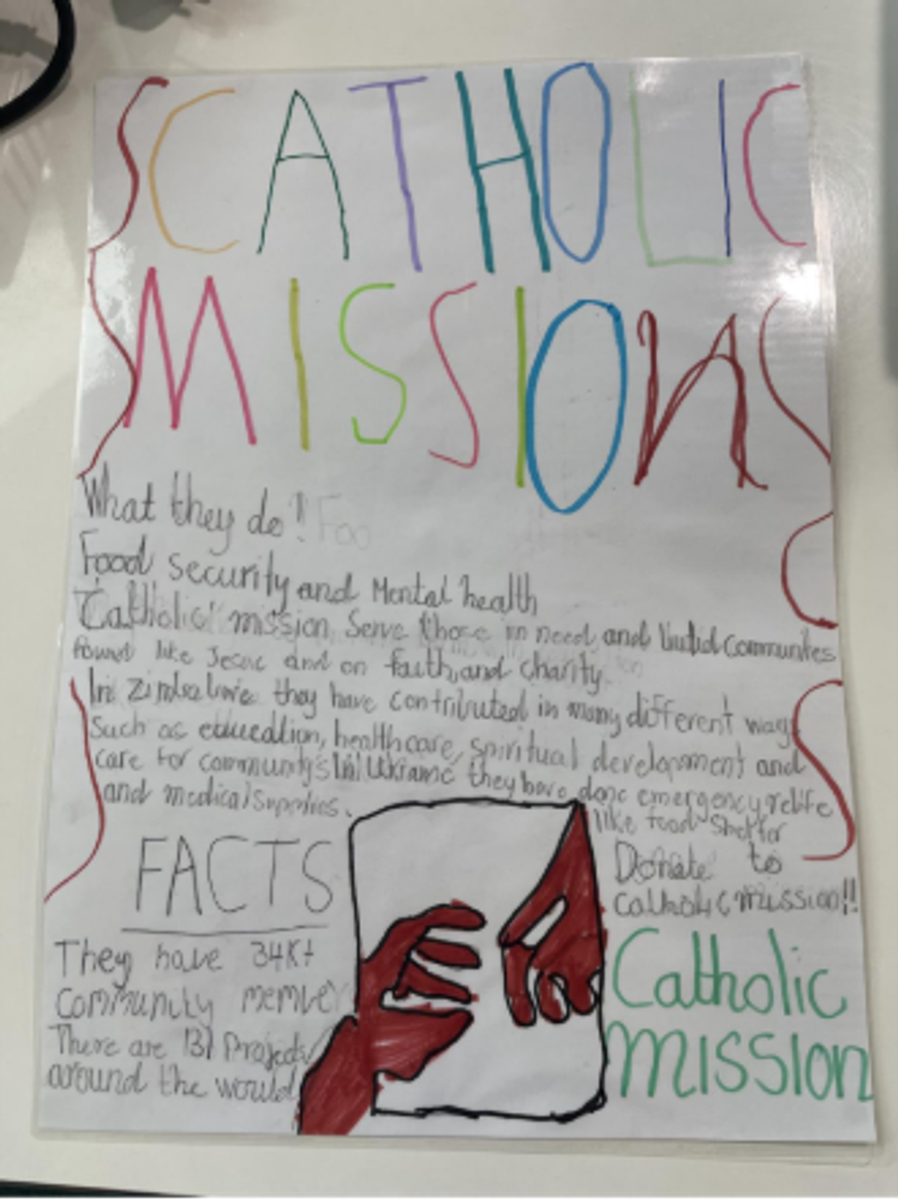 CATHOLIC
MISSION
What they do! Foo
Food security and Mental health
Catholic mission Serve those in need, and communites
like and on faith, and charity
In they have contributed in many different ways
Such as education, healthcare, spiritual development and
care for community's they have done emergency relife
like food shelter
and medical supplies.
FACTS
They have 34K+
Community
There are 137 Projects
around the would
Donate to
catholic mission!!
Catholic
mission